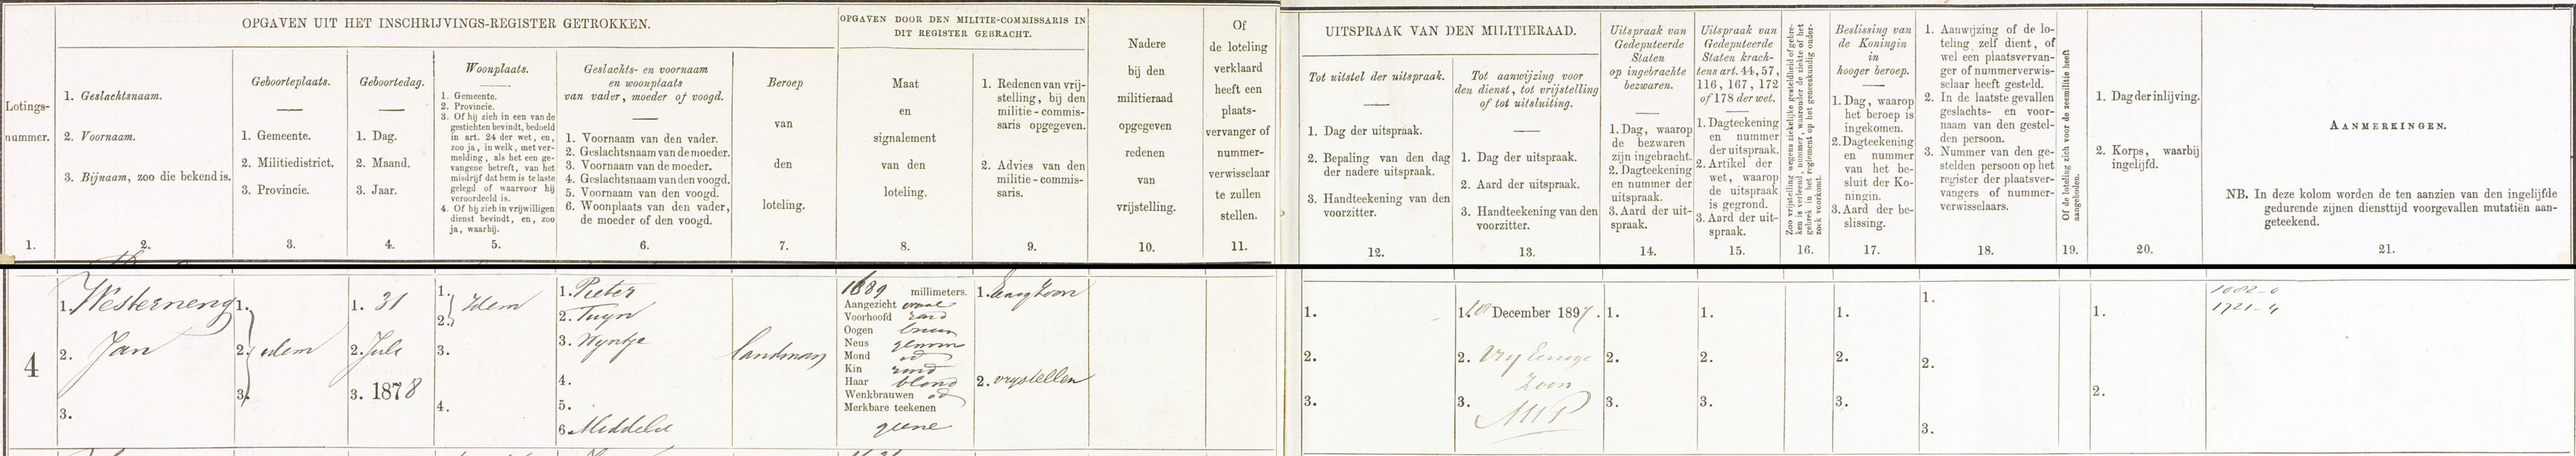 OPGAVEN UIT HET INSCHRIJVINGS-REGISTER GETROKKEN.
OPGAVEN DOOR DEN MILITIE-COMMISSARIS IN
DIT REGISTER GEBRACHT.
Lotings-
nummer.
1.
1. Geslachtsnaam.
2. Voornaam.
3. Bijnaam, zoo die bekend is.
2.
Geboorteplaats.
1. Gemeente.
2. Militiedistrict.
3. Provincie.
3.
Geboortedag.
1. Dag.
2. Maand.
3. Jaar.
4.
Woonplaats.
1. Gemeente.
2. Provincie.
3. Of hij zich in een van de
gestichten bevindt, bedoeld
in art. 24 der wet, en,
zoo ja, in welk, met ver-
melding, als het een ge-
vangene betreft, van het
misdrijf dat hem is te laste
gelegd of waarvoor hij
veroordeeld is.
4. Of hij zich in vrijwilligen
dienst bevindt, en, zoo
ja, waarbij.
5.
Geslachts- en voornaam
en woonplaats
van vader, moeder of voogd.
1. Voornaam van den vader.
2. Geslachtsnaam van de moeder.
3. Voornaam van de moeder.
4. Geslachtsnaam van den voogd.
5. Voornaam van den voogd.
6. Woonplaats van den vader,
de moeder of den voogd.
6.
Beroep
van
den
loteling.
7.
Maat
en
signalement
van den
loteling.
8.
1. Redenen van vrij-
stelling, bij den
militie-commis-
saris opgegeven.
2. Advies van den
militie-commis-
saris.
9.
Nadere
bij den
militieraad
opgegeven
redenen
van
vrijstelling.
10.
Of
de loteling
verklaard
heeft een
plaats-
vervanger of
nummer-
verwisselaar
te zullen
stellen.
11.
UITSPRAAK VAN DEN MILITIERAAD.
Tot uitstel der uitspraak.
1. Dag der uitspraak.
2. Bepaling van den dag
der nadere uitspraak.
3. Handteekening van den
voorzitter.
12.
Tot aanwijzing voor
den dienst, tot vrijstelling
of tot uitsluiting.
1. Dag der uitspraak.
2. Aard der uitspraak.
3. Handteekening van den
voorzitter.
13.
Uitspraak van
Gedeputeerde
Staten
op ingebrachte
bezwaren.
1. Dag, waarop
de bezwaren
zijn ingebracht.
2. Dagteekening
en nummer der
uitspraak.
3. Aard der uit-
spraak.
14.
Uitspraak van
Gedeputeerde
Staten krach-
tens art. 44, 57,
116, 167, 172
of 178 der wet.
1. Dagteekening
en nummer
der uitspraak.
2. Artikel der
wet, waarop
de uitspraak
is gegrond.
3. Aard der uit-
spraak.
15.
Zoo vrijstelling wegens ziekelijke gesteldheid of gebre-
ken is verleend, nummer, waaronder de ziekte of het
gebrek in het reglement op het geneeskundig onder-
zoek voorkomt.
16.
Beslissing van
de Koningin
in
hooger beroep.
1. Dag, waarop
het beroep is
ingekomen.
2. Dagteekening
en nummer
van het be-
sluit der Ko-
ningin.
3. Aard der be-
slissing.
17.
1. Aanwijzing of de lo-
teling zelf dient, of
wel een plaatsvervan-
ger of nummerverwis-
selaar heeft gesteld.
2. In de laatste gevallen
geslachts- en voor-
naam van den gestel-
den persoon.
3. Nummer van den ge-
stelden persoon op het
register der plaatsver-
vangers of nummer-
verwisselaars.
18.
Of de loteling zich voor de zeemilitie heeft
aangeboden.
19.
1. Dag der inlijving.
2. Korps, waarbij
ingelijfd.
20.
AANMERKINGEN.
NB. In deze kolom worden de ten aanzien van den ingelijfde
gedurende zijnen diensttijd voorgevallen mutatiën aan-
geteekend.
21.
4
1. Westerneng
2. Jan
3.
1.
2. idem
3.
1. 31
2. Juli
3. 1878
1. Idem
2.
3.
4.
1. Pieter
2. Tuyn
3. Wyntje
4.
5.
6. Middelie
landman
1689 millimeters.
Aangezicht ovaal
Voorhoofd rond
Oogen bruin
Neus gewoon
Mond id
Kin rond
Haar blond
Wenkbrauwen id
Merkbare teekenen
geene
1. Eenig zoon
2. vrystellen
1.
2.
3.
1. 10 December 1897.
2. Vry Eenige
Zoon
3.
1.
2.
3.
1.
2.
3.
1.
2.
3.
1.
2.
3.
1.
2.
1721-4